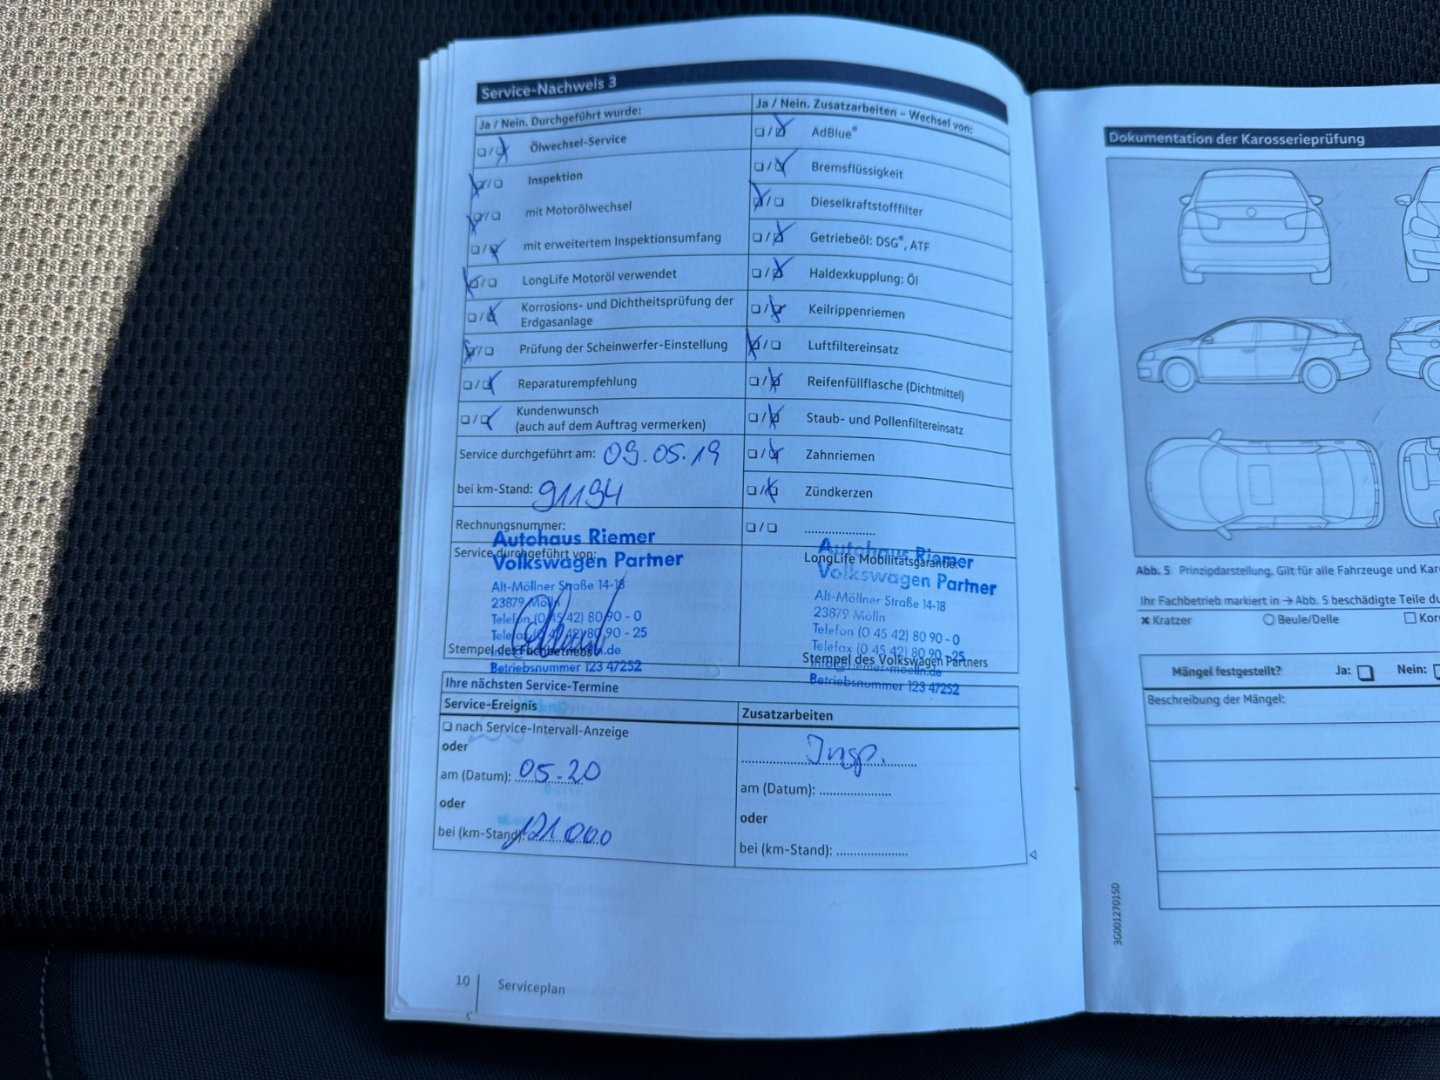 Service-Nachweis 3
Ja / Nein. Durchgeführt wurde:
☐/☒ Ölwechsel-Service
☒/☐ Inspektion
☒/☐ mit Motorölwechsel
☐/☒ mit erweitertem Inspektionsumfang
☒/☐ LongLife Motoröl verwendet
☐/☒ Korrosions- und Dichtheitsprüfung der
Erdgasanlage
☒/☐ Prüfung der Scheinwerfer-Einstellung
☐/☒ Reparaturempfehlung
☐/☒ Kundenwunsch
(auch auf dem Auftrag vermerken)
Service durchgeführt am: 09.05.19
bei km-Stand: 91194
Rechnungsnummer:
Service durchgeführt von:
Autohaus Riemer
Volkswagen Partner
Alt-Möllner Straße 14-18
23879 Mölln
Telefon (0 45 42) 80 90 - 0
Telefax (0 45 42) 80 90 - 25
Stempel des Fachbetriebs
Betriebsnummer 123 47252
Ja / Nein. Zusatzarbeiten – Wechsel von:
☐/☒ AdBlue®
☐/☒ Bremsflüssigkeit
☒/☐ Dieselkraftstofffilter
☐/☒ Getriebeöl: DSG®, ATF
☐/☒ Haldexkupplung: Öl
☐/☒ Keilrippenriemen
☒/☐ Luftfiltereinsatz
☐/☒ Reifenfüllflasche (Dichtmittel)
☐/☒ Staub- und Pollenfiltereinsatz
☐/☒ Zahnriemen
☐/☒ Zündkerzen
☐/☐ ....................
LongLife Mobilitätsgarantie:
Autohaus Riemer
Volkswagen Partner
Alt-Möllner Straße 14-18
23879 Mölln
Telefon (0 45 42) 80 90 - 0
Telefax (0 45 42) 80 90 - 25
Stempel des Volkswagen Partners
info@riemer-moelln.de
Betriebsnummer 123 47252
Ihre nächsten Service-Termine
Service-Ereignis
☐ nach Service-Intervall-Anzeige
oder
am (Datum): 05-20
oder
bei (km-Stand): 121 000
Zusatzarbeiten
Insp.
am (Datum): ....................
oder
bei (km-Stand): ....................
10 Serviceplan
Dokumentation der Karosserieprüfung
Abb. 5 Prinzipdarstellung. Gilt für alle Fahrzeuge und
Ihr Fachbetrieb markiert in → Abb. 5 beschädigte Teile
✖ Kratzer ○ Beule/Delle ☐
Mängel festgestellt? Ja: ☐ Nein: ☐
Beschreibung der Mängel:
3G0012701SD